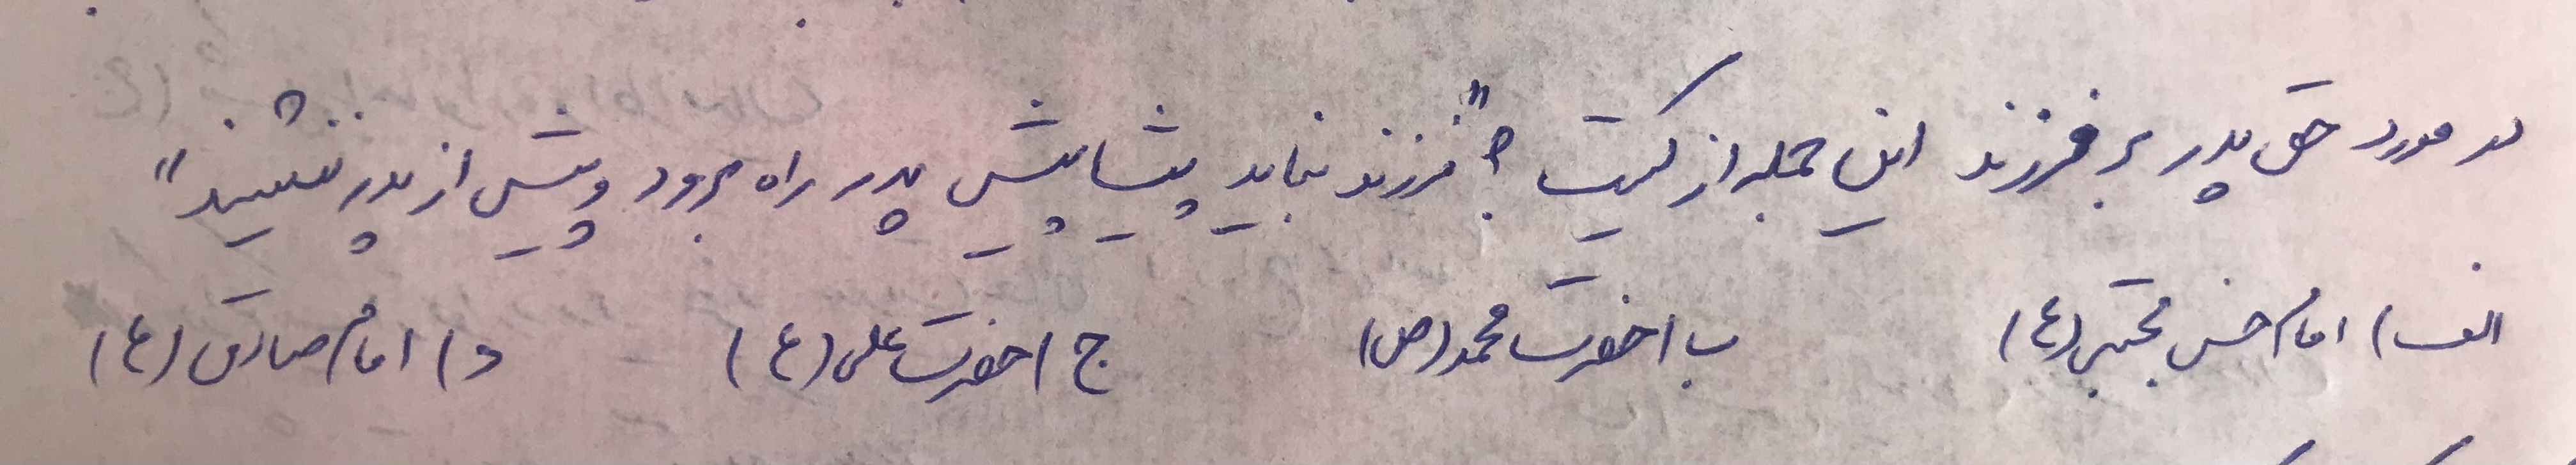 در مورد حق پدر بر فرزند این جمله از کیست ؟ "فرزند نباید پیشاپیش پدر راه برود و پیش از پدر ننشیند"
الف) امام حسن مجتبی (ع) ب) حضرت محمد (ص) ج) حضرت علی (ع) د) امام صادق (ع)